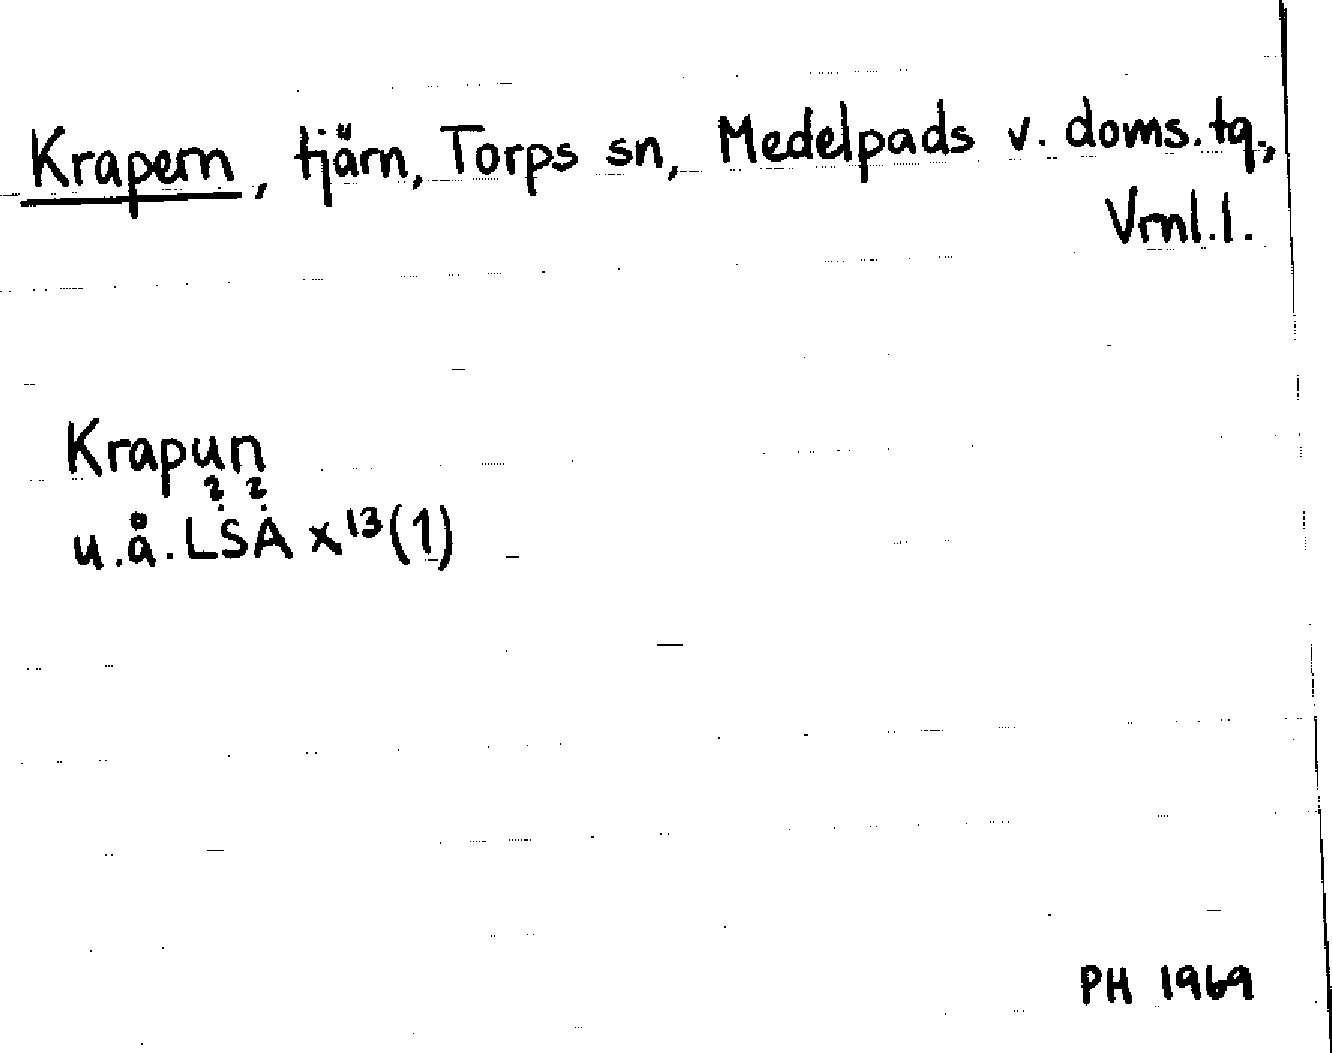 Krapern, tjärn, Torps sn, Medelpads v. doms.tg,
Vrnl.l.
Krapun
? ?
u.å. LSA x¹³(1)
PH 1969